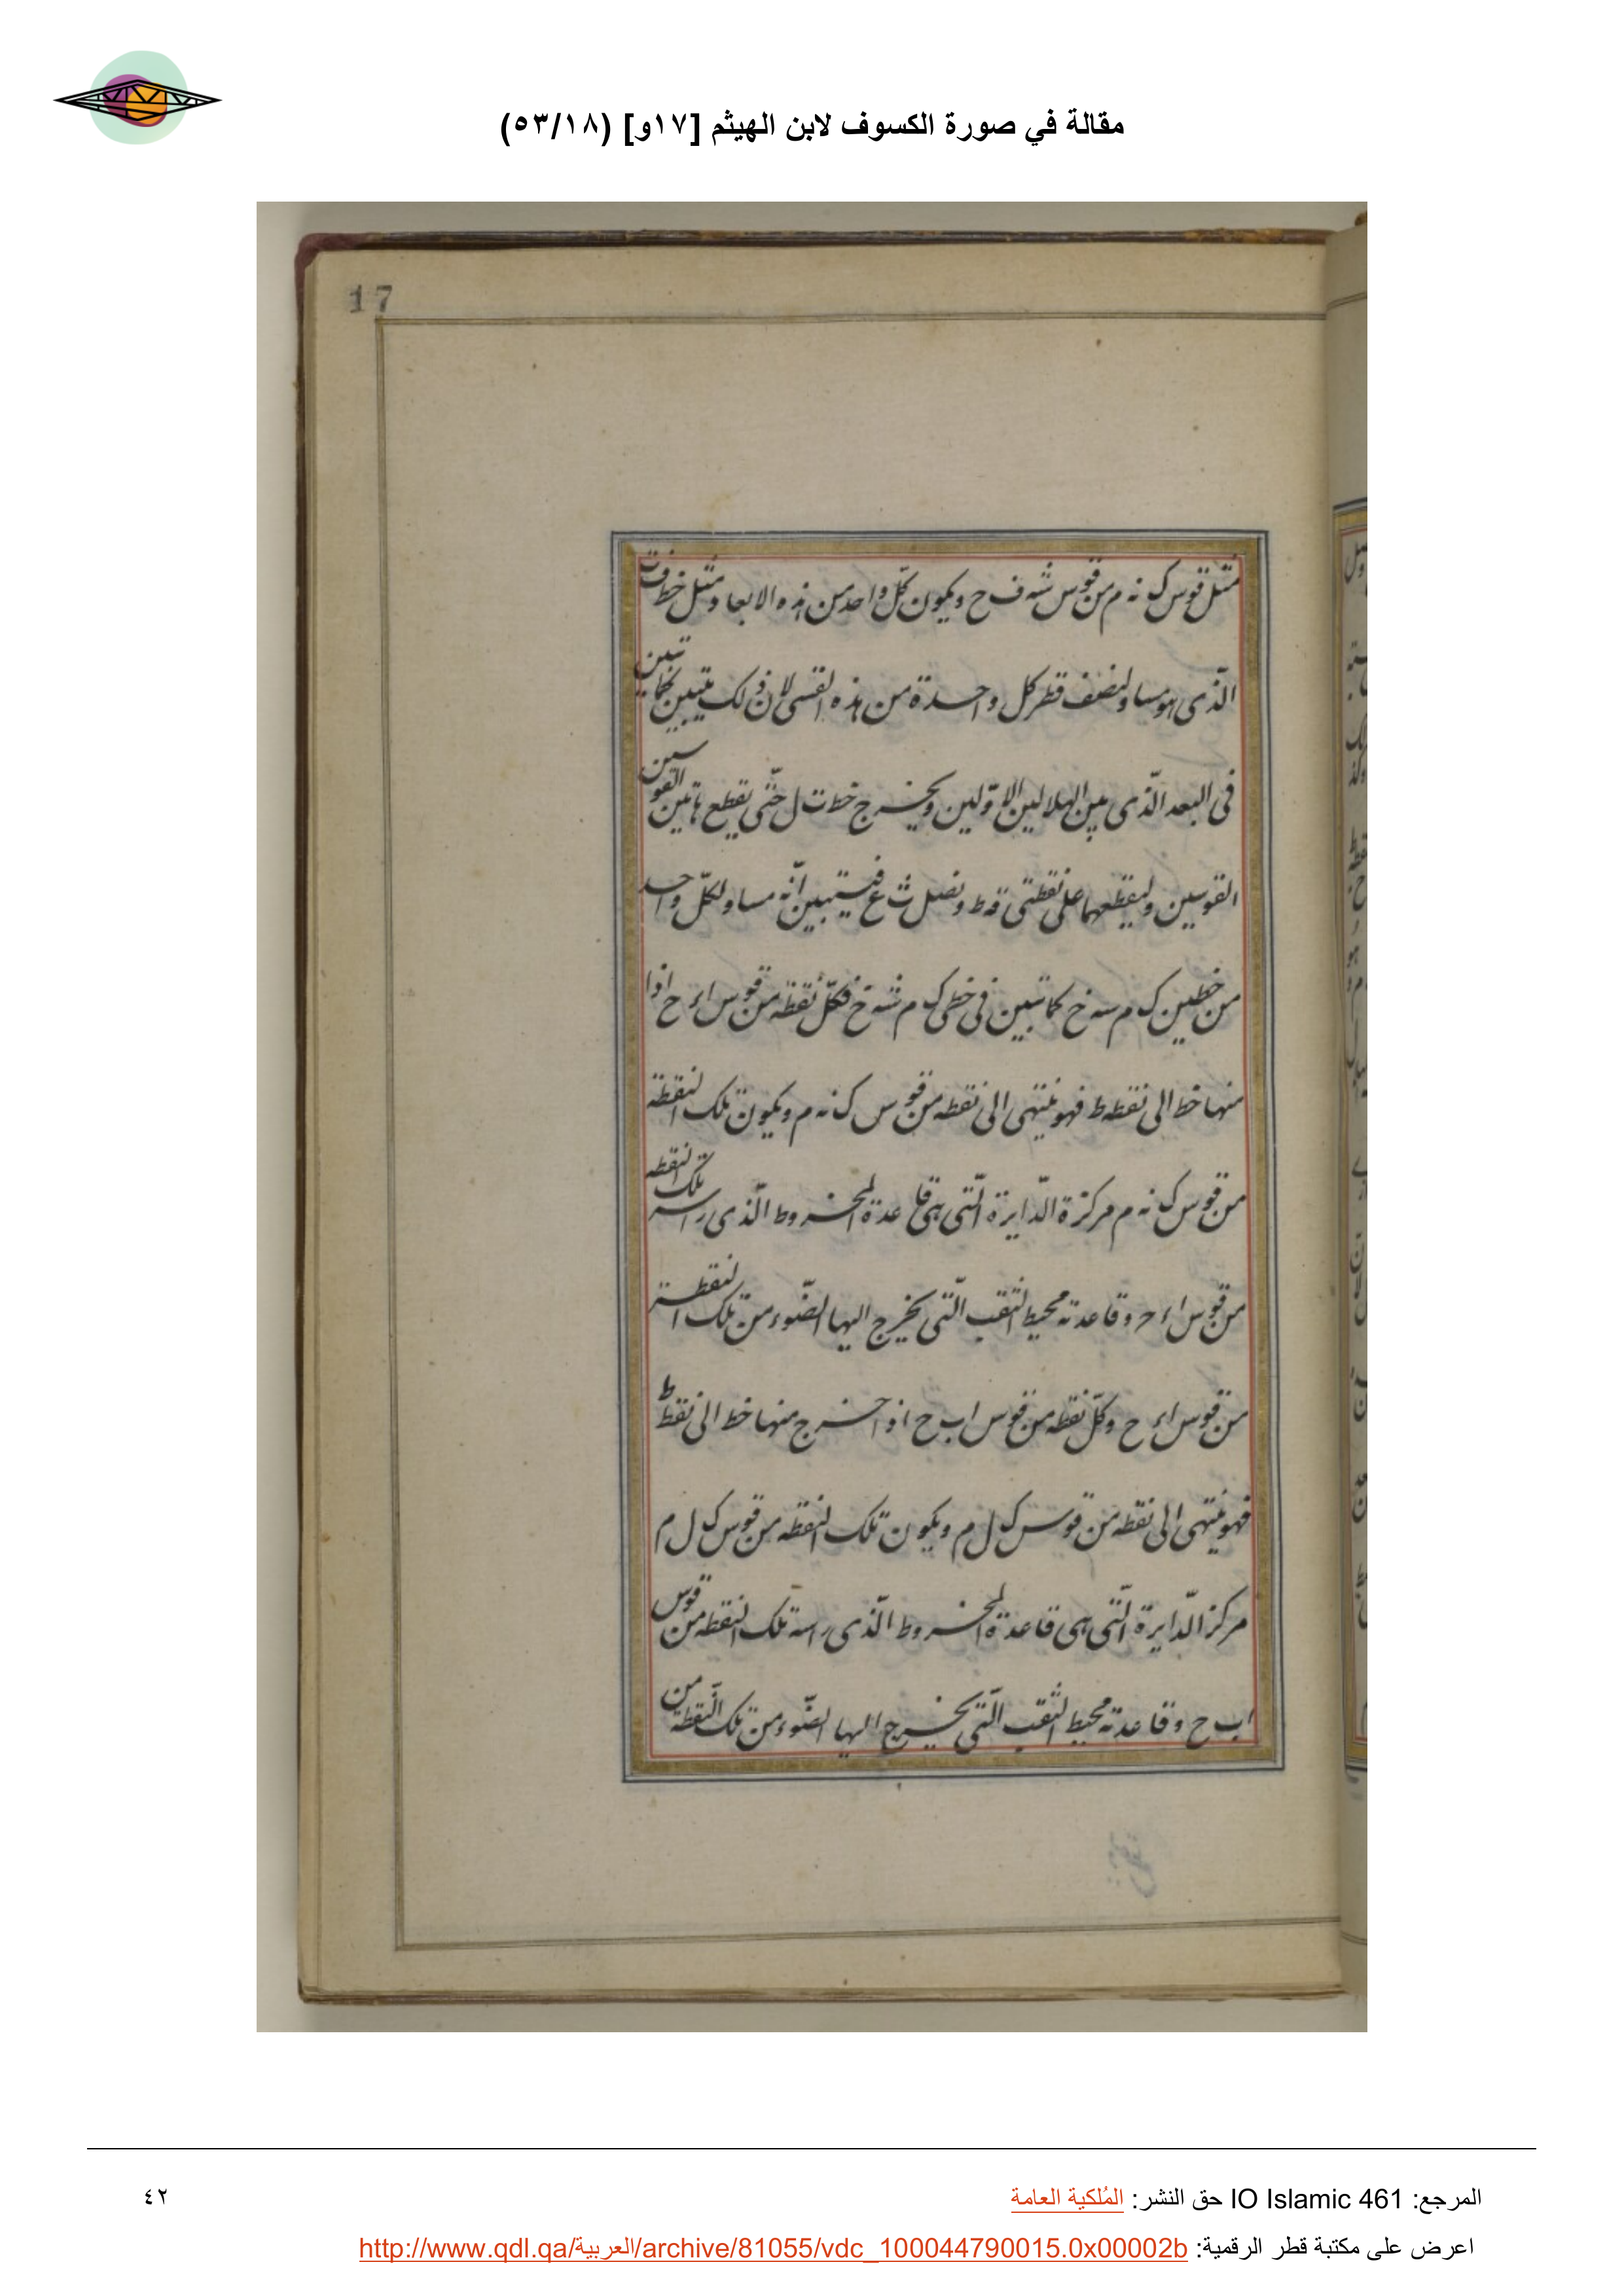 مقالة في صورة الكسوف لابن الهيثم [١٧و] (٥٣/١٨)
17
مثل قوس ك نه م من قوس شه ف ح ويكون كل واحد من هذه الابعاد مثل خط ف ت
الذى هو مساو لنصف قطر كل واحدة من هذه القسى لان ذلك يتبين كما تبين
فى البعد الذى بين الهلالين الاولين ويخرج خط ت ل حتى يقطع هاتين القوسين
القوسين وليقطعهما على نقطتى ونصل ث ع فيتبين انه مساو لكل واحد
من خطين ك م سه خ كما تبين فى خطى ك م شه خ فكل نقطه من قوس اء ح اذا
منها خط الى نقطه ط فهو ينتهى الى نقطه من قوس ك نه م ويكون تلك النقطة
من قوس ك نه م مركزة الدايرة التى هى قاعدة المخروط الذى راسه تلك النقطه
من قوس اء ح وقاعدته محيط الثقب التى يخرج اليها الضوء من تلك النقطة
من قوس اء ح وكل نقطه من قوس اب ح اذا خرج منها خط الى نقطة ط
فهو ينتهى الى نقطه من قوس ك ل م ويكون تلك النقطه من قوس ك ل م
مركز الدايرة التى هى قاعدة المخروط الذى راسه تلك النقطه من قوس
اب ح وقاعدته محيط الثقب التى يخرج اليها الضوء من تلك النقطة من
المرجع: IO Islamic 461 حق النشر: المُلكية العامة
٤٢
اعرض على مكتبة قطر الرقمية: http://www.qdl.qa/العربية/archive/81055/vdc_100044790015.0x00002b